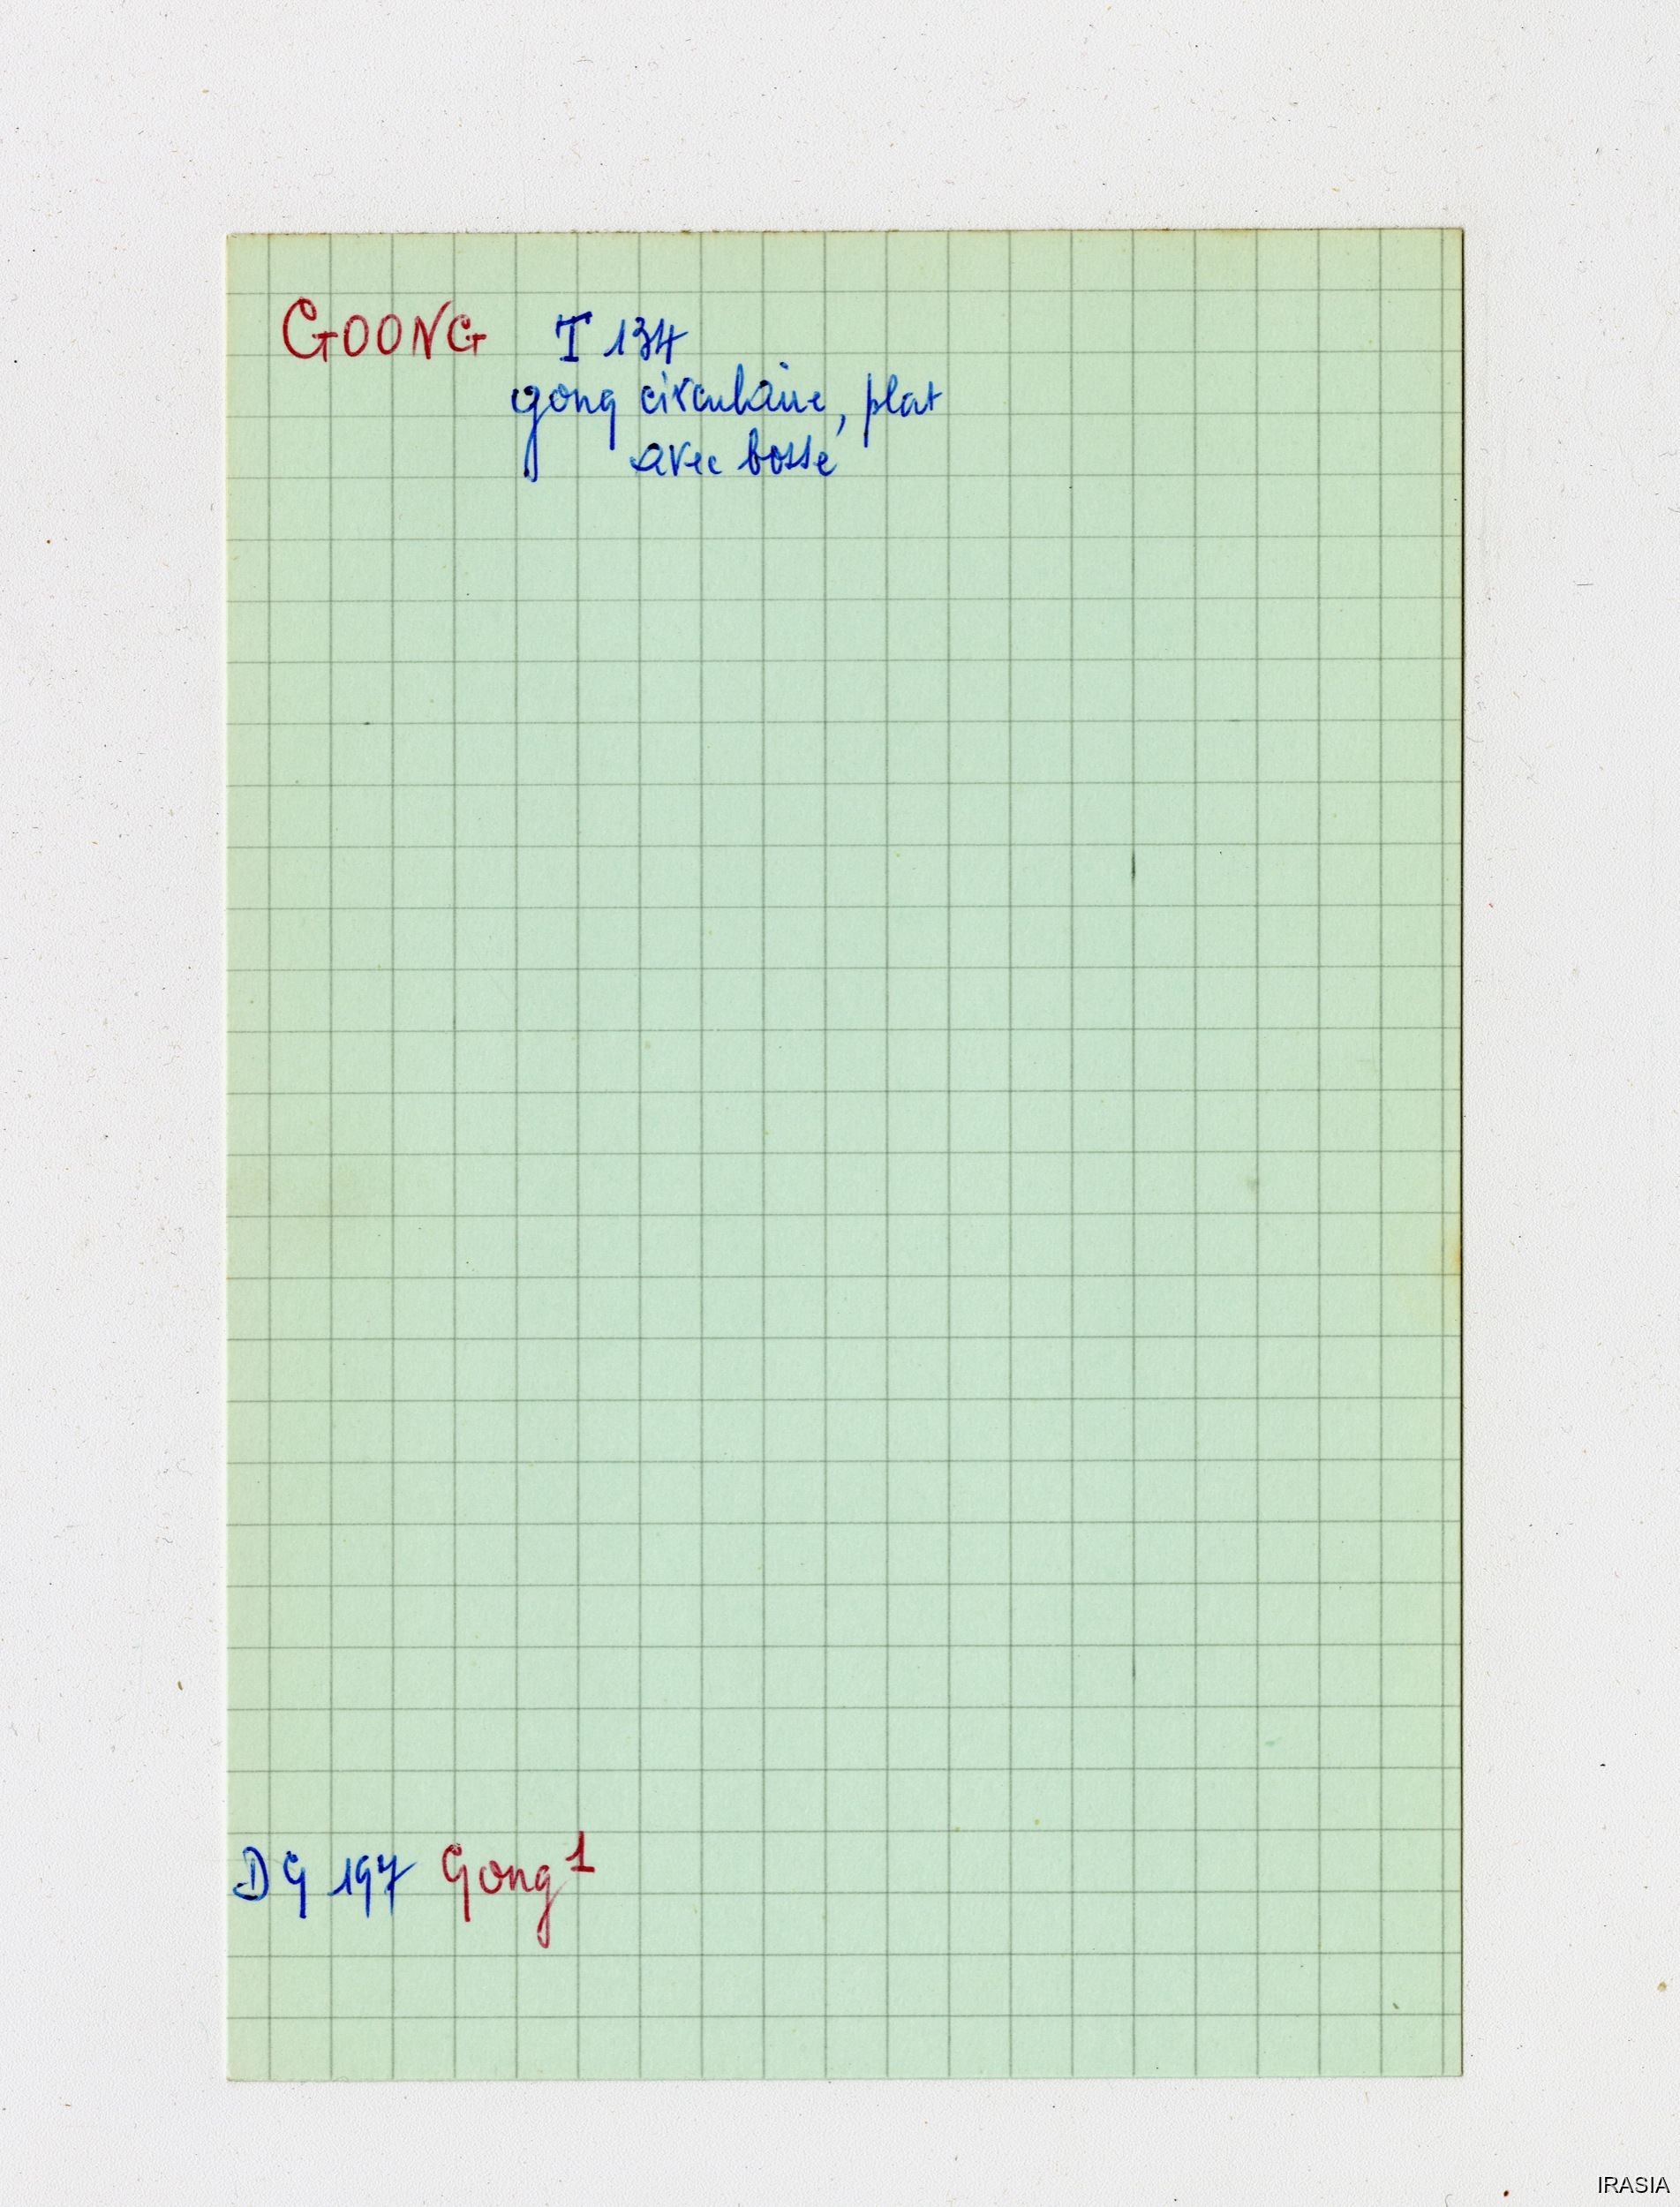 GOONG T 134
gong circulaire, plat
avec bosse
DG 197 Gong¹
IRASIA